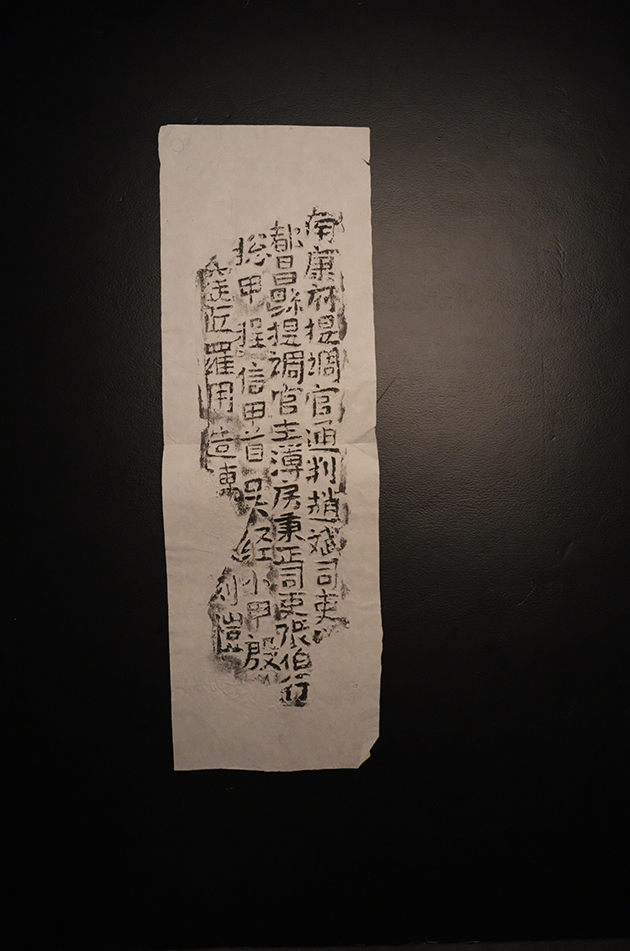 南康府提調官通判趙斌司吏
都昌縣提調官主簿房秉正司吏張伯行
揔甲程信甲首吳经小甲殷
窑匠羅用造